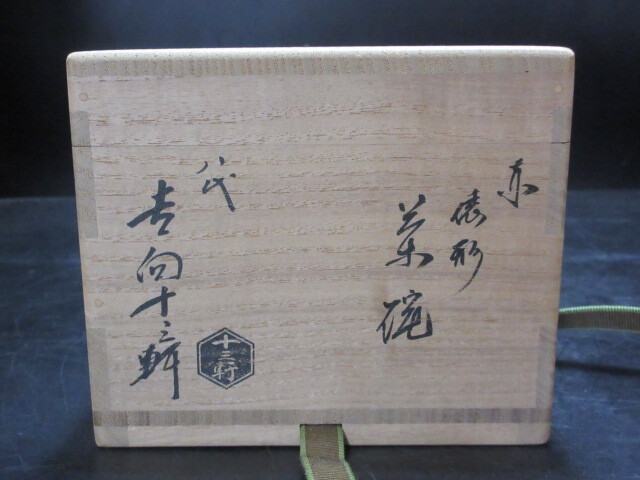 赤
俵形
茶碗
八代
吉向十三軒
十三軒